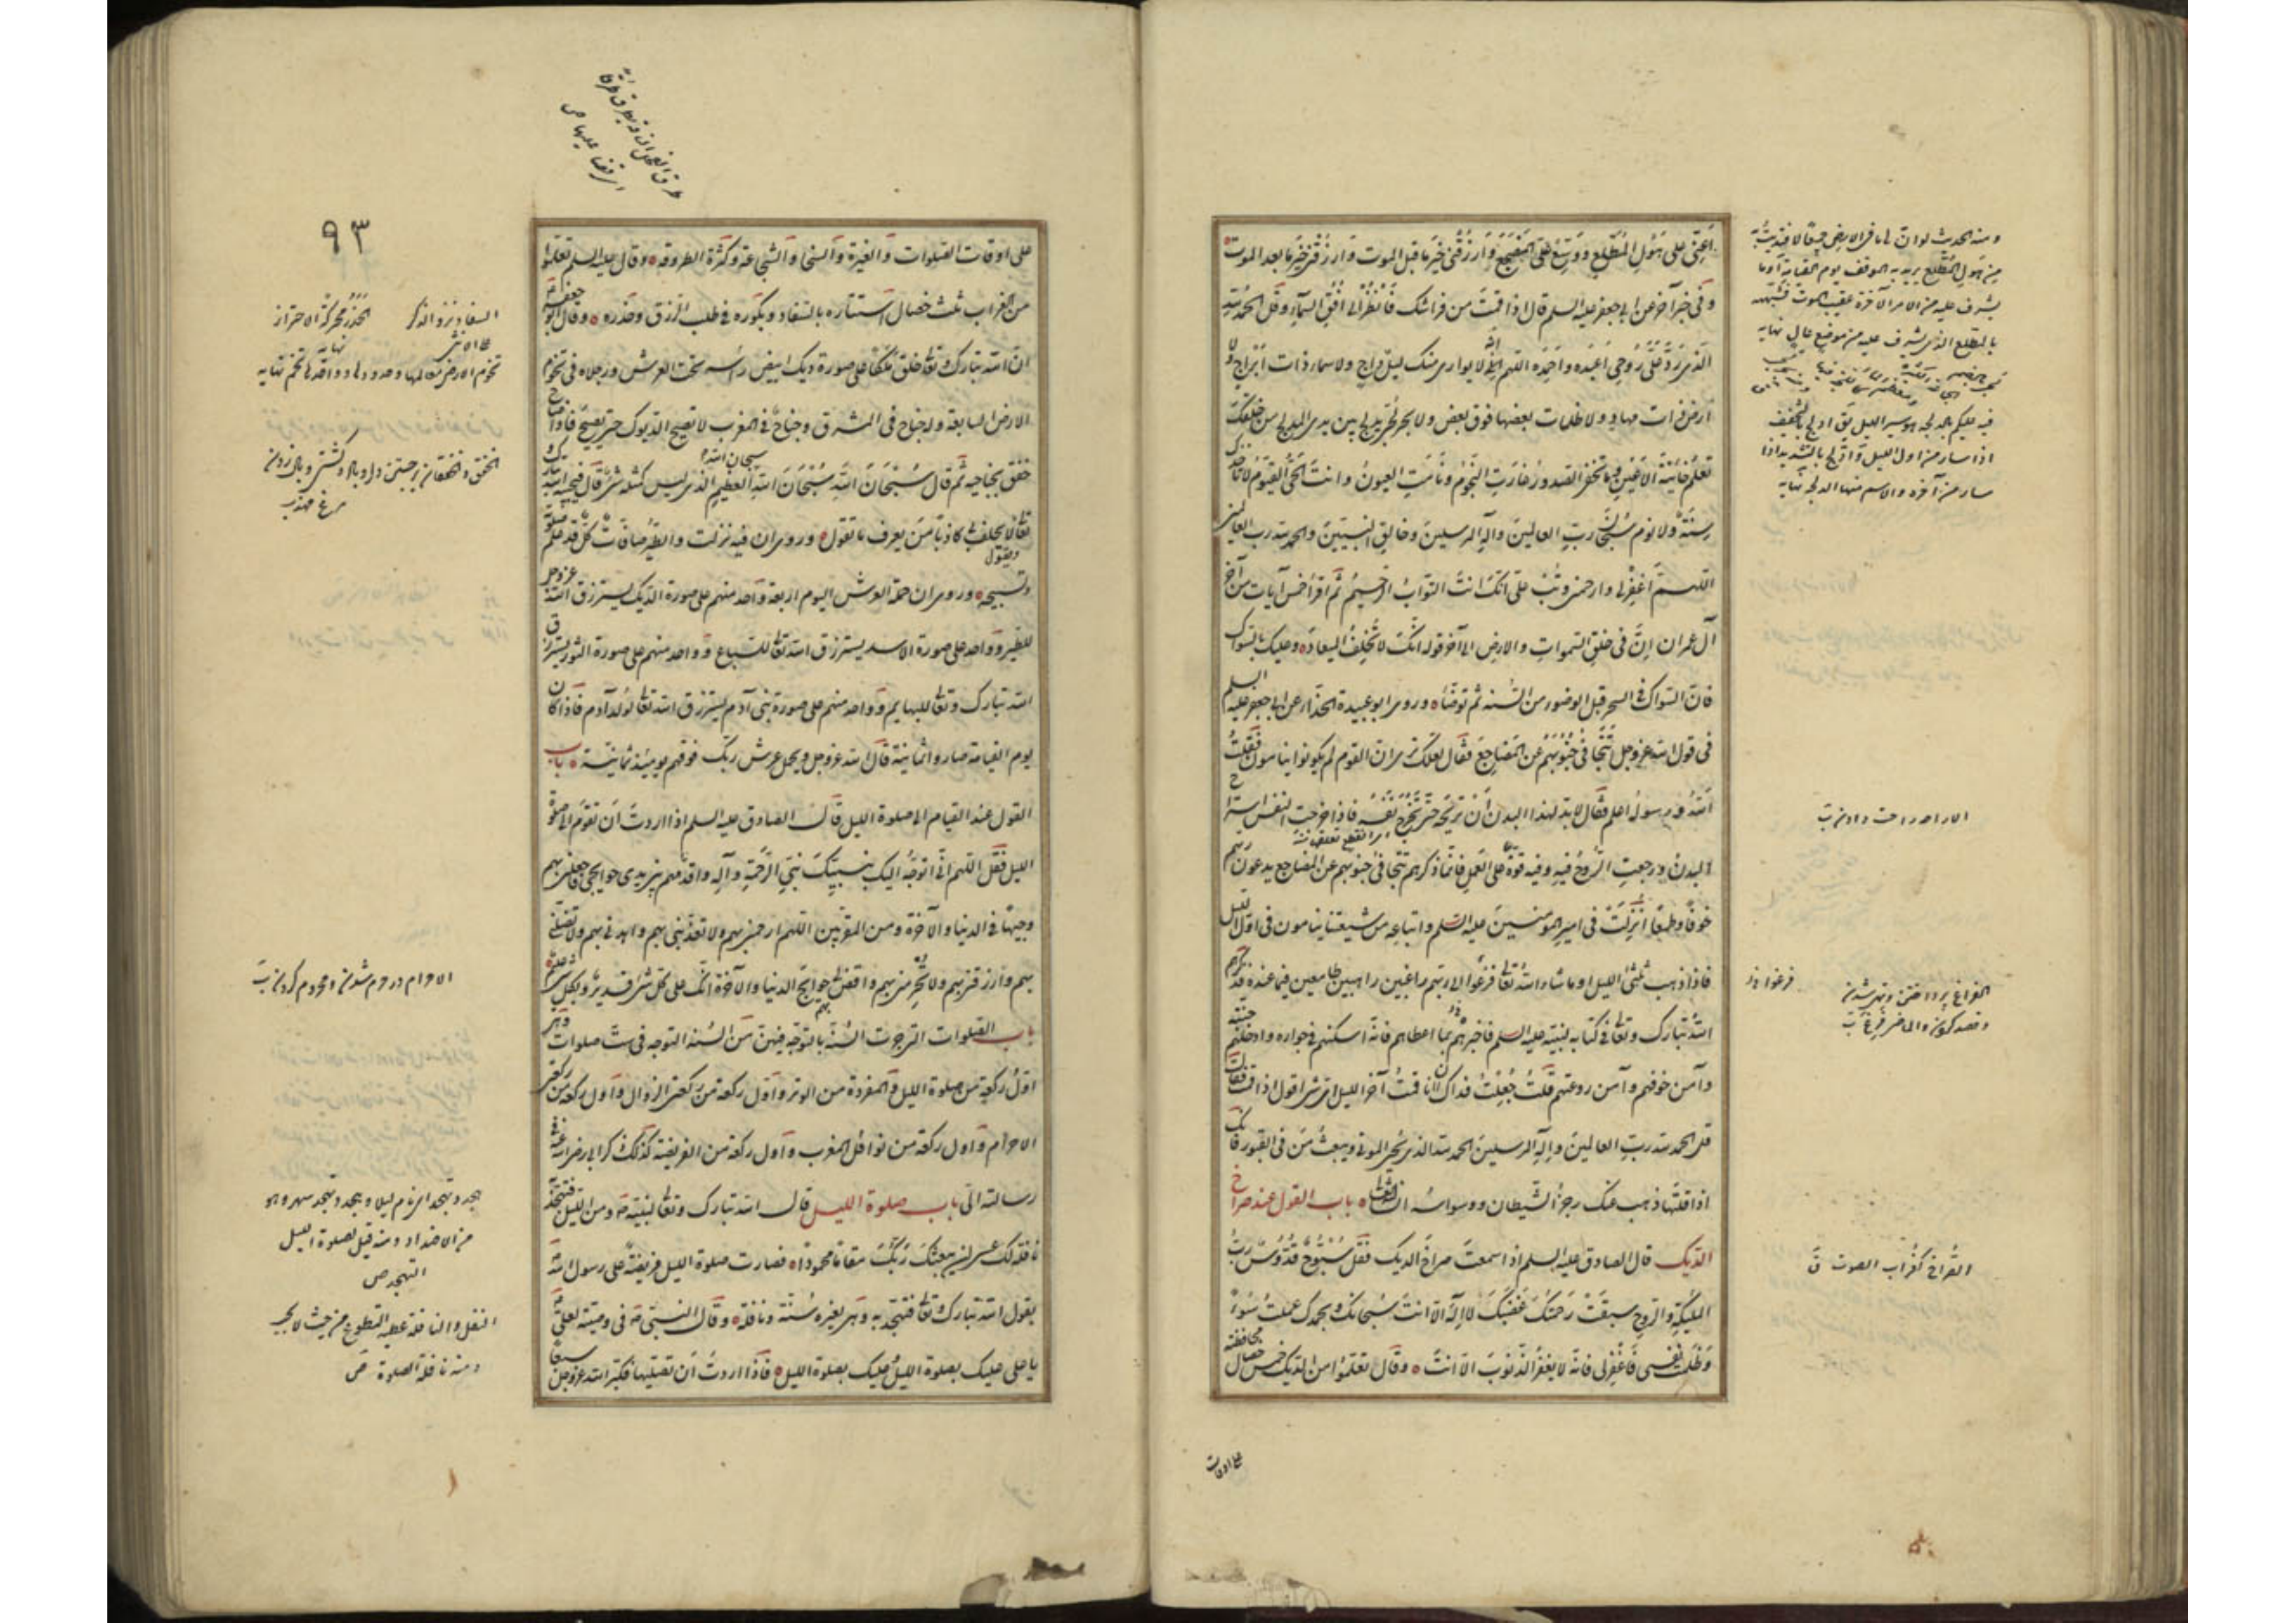 اَعِنّى على هَوْلِ المُطّلَعِ ووَسِّعْ عَلَىَّ المَضْجَعَ وَارْزُقْنى خَيْرَ ما قبل الموت وَارزُقْنى خَيْرَ ما بعد الموت
وفى خبر آخر عن ابى جعفر عليه السلم قال اذا قمتَ من فراشك فَانْظُرْ الى افق السماء وقل الحمد لله
الّذى رَدَّ عَلَىَّ رُوحِى اَعبُدُه واَحمَدُه اللهم انه لا يوارى منك ليل داج ولا سماء ذات ابراج ولا
ارض ذات مهاد ولا ظلمات بعضها فوق بعض ولا بحر لجّى يدلج بين يدى المدلج من خلقك
تَعلَمُ خائِنَةَ الاَعْيُنِ وما تخفى الصدور غارَتِ النُّجُومُ ونامَتِ العيونُ وانتَ الحىّ القيّوم لا تأخذك
سِنَةٌ ولا نوم سُبْحانَ ربّ العالمينَ وآلِهِ المرسلينَ وخالقِ النبيّينَ والحمد لله رب العالمين
اللهمّ اغفِرْ لى وارحمنى وتُبْ علىّ انّكَ انتَ التوّابُ الرّحيمُ ثم اقرأ خمس آيات من آخر
آل عمران اِنَّ فى خلقِ السّمواتِ والارضِ الى آخر قوله انّكَ لا تُخْلِفُ الميعاد وعليك بالسواك
فانّ السّواك فى السحر قبل الوضوء من السُّنه ثم توضّأ وروى ابو عبيدة الحذّاء عن ابى جعفر عليه السلم
فى قول الله عز وجل تَتَجافى جُنُوبُهُم عن المَضاجِعِ فقال لعلّك ترى انّ القوم لم يكونوا ينامون فقلتُ
اللهُ ورسولُه اعلم فقال لا بدّ لهذا البدن اَنْ تُريحَهُ حتّى تَخْرُجَ نَفْسُهُ فاذا خرجت النفس استراح
البدنُ ورجعتِ الرُّوحُ فيه وفيه قوّة على العمل فانما ذكرهم تتجافى جنوبهم عن المضاجع يدعون ربهم
خَوفًا وطَمَعًا اُنْزِلَتْ فى اميرِ المؤمنينَ عليه السلم واتباعِه من شيعتنا ينامون فى اوّل الليل
فاذا ذهب ثلثى الليل او ما شاء الله تعالى فزعوا الى ربّهم راغبين راهبين طامعين فيما عنده فذكرهم
الله تبارك وتعالى فى كتابه لنبيّه عليه السلم فاخبرهم بما اعطاهم فانّه اسكنهم فى جواره وادخلهم جنّته
وآمن خوفهم وآمن روعتهم قلتُ جُعِلْتُ فداك ان انا قمتُ آخر الليل اى شئ اقول اذا قمت فقال
قل الحمد لله ربّ العالمينَ واِلهِ المرسلينَ الحمد لله الذى يُحيى الموتى ويبعثُ مَن فى القبور فانك
اذا قلتَها ذهب عنك رجزُ الشّيطان ووسواسُه ان شاء الله تعالى باب القول عند صراخ
الدّيك قال الصادق عليه السلم اذا سمعتَ صراخَ الديك فَقُلْ سُبُّوحٌ قُدُّوسٌ ربُّ
المليكةِ والرّوحِ سبقَتْ رَحمَتُكَ غَضَبَكَ لا اله الّا انتَ سُبحانك وبحمدك عملتُ سُوءً
وظَلَمتُ نفسى فَاغْفِرلى فانّه لا يغفرُ الذّنوبَ الّا انتَ وقال تعلّموا من الديك خمس خصال محافظته
على اوقات
ومنه الحديث لو ان لى ما فى الارض جميعًا لافتديتُ به
مِن هَولِ المُطَّلَعِ يريد به الموقف يوم القيامة او ما
يشرف عليه من الامر الآخرة عقيب الموت فشبّهه
بالمطّلع الذى يشرف عليه من موضع عال نهايه
فيه عليكم بالدلجه هو سير الليل يق ادلج بالتخفيف
اذا سار من اول الليل وادّلج بالتشديد اذا
سار من آخره والاسم منها الدلجه نهايه
الاراحه راحت دادن تب
الفراغ پرداختن وتهى شدن
وقصد كردن والماضى فرغ تب
الصُّراخ كغُراب الصوت ق
٩٣
على اوقات الصّلوات والغيرة والسخا والشجاعة وكثرة الطروقه وقال عليه السلم تعلّموا
من الغراب ثلث خصال استتاره بالسّفاد وبكوره فى طلب الرّزق وحَذَره وقال ابو جعفر
انّ الله تبارك وتعالى خلق ملكًا على صورة ديك ابيض راسه تحت العرش ورجلاه فى تخوم
الارض السابعة وله جناح فى المشرق وجناحٌ فى المغرب لا تصيح الديوك حتى يصيح فاذا صاح
خفق بجناحيه ثم قال سُبْحَانَ اللهِ سُبْحَانَ اللهِ العظيمِ الذى ليس كمثله شئ قال فيجيبه الله تبارك
تعالى لا يحلف بى كاذبًا مَنْ يعرف ما تقول وروى ان فيه نزلت والطيرُ صافّاتٌ كلٌّ قد علم صلوته
وتسبيحه وروى ان حملة العرش اليوم اربعة واحد منهم على صورة الديك يسترزق الله عزوجل
للطير وواحد على صورة الاسد يسترزق الله تعالى للسباع وواحد منهم على صورة الثور يسترزق
الله تبارك وتعالى للبهايم وواحد منهم على صورة بنى آدم يسترزق الله تعالى لولد آدم فاذا كان
يوم القيامة صاروا ثمانية قال الله عز وجل ويحمل عرش ربّك فوقهم يومئذ ثمانية باب
القول عند القيام الى صلوة الليل قال الصادق عليه السلم اذا اردت ان تقوم الى صلوة
الليل فَقُل اللهم انّى اتوجّه اليك بنبيّكَ نبىِّ الرَّحمةِ وآلِه واقدّمهم بين يدى حوايجى فاجعلنى بهم
وجيهًا فى الدنيا والآخرة ومن المقرّبين اللهم ارحمنى بهم ولا تعذّبنى بهم واهدنى بهم ولا تضلّنى
بهم وارزقنى بهم ولا تحرمنى بهم واقض لى حوايج الدنيا والآخرة انّك على كل شئ قدير وبكل شئ عليم
باب الصّلوات التى جرت السُّنّة بالتوجّه فيهنّ من السُنّة التوجه فى ستّ صلوات وهى
اوّل ركعة من صلوة الليل والمفردة من الوتر واوّل ركعة من ركعتى الزوال واول ركعة من ركعتى
الاحرام واول ركعة من نوافل المغرب واول ركعة من الفريضة كذلك ذكر ابى رضى الله عنه فى
رسالته الىّ باب صلوة الليل قال الله تبارك وتعالى لنبيّه ص ومن الليل فتهجّد
به نافلةً لك عسى ان يبعثكَ رَبُّكَ مقامًا محمودًا فصارت صلوة الليل فريضةً على رسول الله
بقول الله تبارك وتعالى فتهجّد به وهى لغيره سُنّة ونافلة وقال النبى ص فى وصيّته لعلى
يا على عليك بصلوة الليل عليك بصلوة الليل فاذا اردتَ ان تصلّيها فكبّر الله عز وجل سبعًا
السفاد نزو الذكر على الانثى
الحَذَر محركةً الاحتراز
تخوم الارض معالمها وحدودها وواحدها تخم نهايه
الخفق والخفقان برجستن دل وباد وگشتن وبال زدن
مرغ مهذب
الاحرام در حرم شدن ومحروم كردن تب
هجد وتهجد اى نام ليلا وهجد وتهجد سهر وهو
من الاضداد ومنه قيل لصلوة الليل
التهجد ص
النفل والنافلة عطية التطوع من حيث لا يجب
ومنه نافلة الصلوة ص